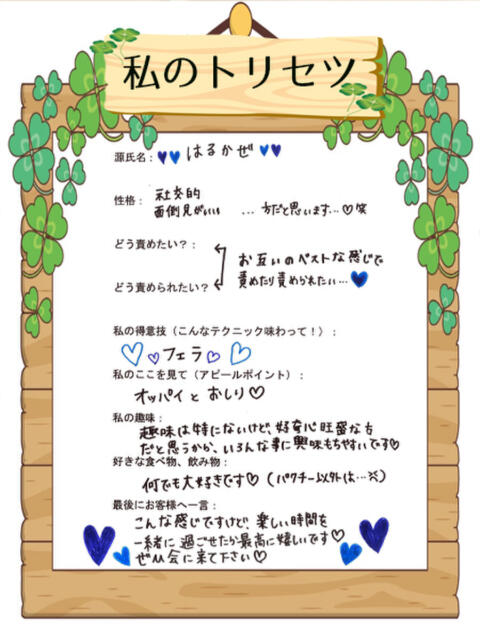 私のトリセツ
源氏名：はるかぜ
性格：社交的
面倒見がいい …方だと思います…♡笑
どう責めたい？：
お互いのベストな感じで
責めたり責められたい…
どう責められたい？
私の得意技（こんなテクニック味わって！）：
フェラ
私のここを見て（アピールポイント）：
オッパイとおしり♡
私の趣味：
趣味は特にないけど、好奇心旺盛な方
だと思うから、いろんな事に興味もちやすいです♡
好きな食べ物、飲み物：
何でも大好きです♡（パクチー以外は…※）
最後にお客様へ一言：
こんな感じですけど、楽しい時間を
一緒に過ごせたら最高に嬉しいです♡
ぜひ会に来て下さい♡